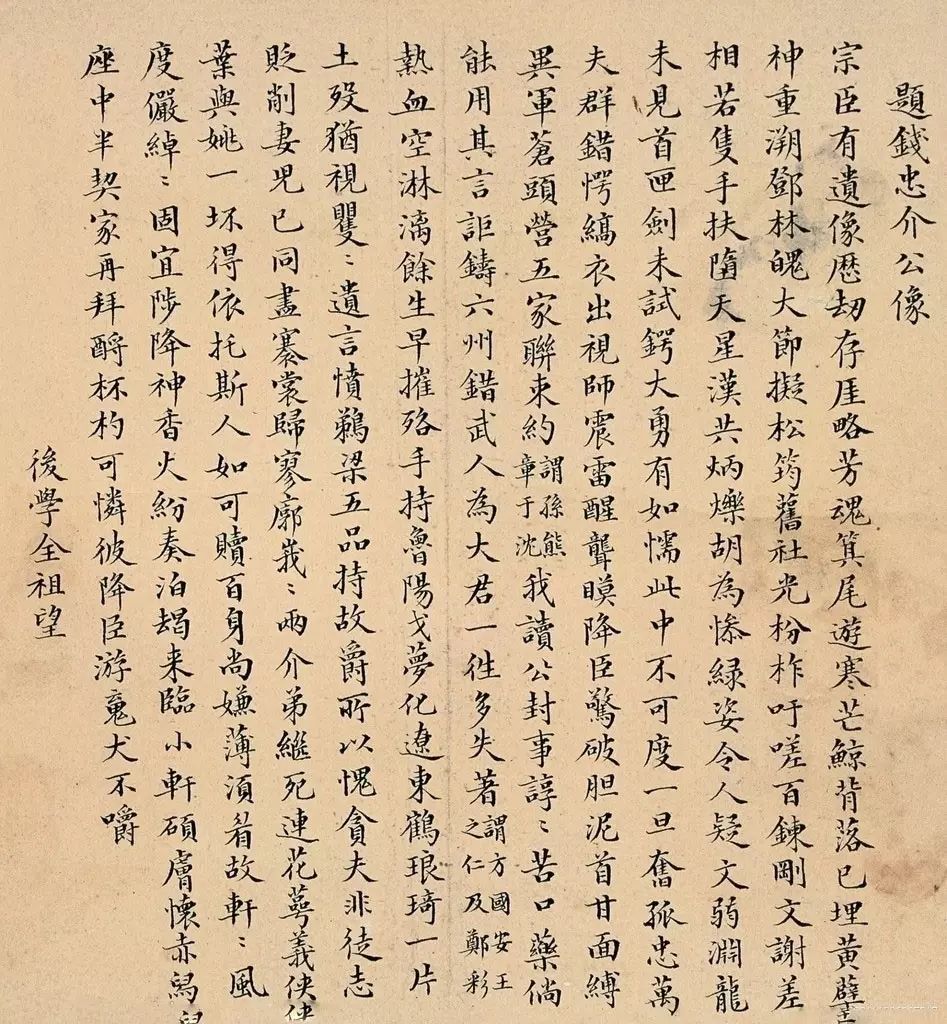 題錢忠介公像
宗臣有遺像歷劫存厓略芳魂箕尾遊寒芒鯨背落已埋黃蘗
神重溯鄧林魄大節擬松筠舊社光枌柞吁嗟百鍊剛文謝差
相若隻手扶墮天星漢共炳爍胡為慘綠姿令人疑文弱淵龍
未見首匣劍未試鍔大勇有如懦此中不可度一旦奮孤忠萬
夫群錯愕縞衣出視師震雷醒聾瞙降臣驚破胆泥首甘面縛
異軍蒼頭營五家聯束約謂孫熊章于沈我讀公封事諄〻苦口藥倘
能用其言詎鑄六州錯武人為大君一往多失著謂方國安王之仁及鄭彩
熱血空淋漓餘生早摧殆手持魯陽戈夢化遼東鶴琅琦一片
土歿猶視瞿〻遺言憤鵜梁五品持故爵所以愧貪夫非徒志
貶削妻児已同盡褰裳歸寥廓峩〻兩介弟繼死連花萼義俠
葉與姚一坏得依托斯人如可贖百身尚嫌薄湏眉故軒〻風
度儼綽〻固宜陟降神香火紛奏泊朅来臨小軒碩膚懷赤舄
座中半契家再拜酹杯杓可憐彼降臣游䰟犬不嚼
後學全祖望